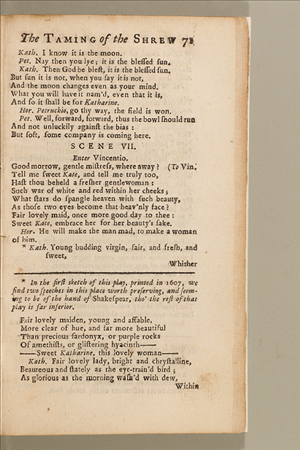 The TAMING of the SHREW 71
Kath. I know it is the moon.
Pet. Nay then you lye; it is the blessed sun.
Kath. Then God be blest, it is the blessed sun,
But sun it is not, when you say it is not,
And the moon changes even as your mind.
What you will have it nam'd, even that it is,
And so it shall be for Katharine.
Hor. Petruchio, go thy way, the field is won.
Pet. Well, forward, forward, thus the bowl should run
And not unluckily against the bias:
But soft, some company is coming here.
SCENE VII.
Enter Vincentio.
Good morrow, gentle mistress, where away? (To Vin.
Tell me sweet Kate, and tell me truly too,
Hast thou beheld a fresher gentlewoman:
Such war of white and red within her cheeks;
What stars do spangle heaven with such beauty,
As those two eyes become that heav'nly face?
Fair lovely maid, once more good day to thee:
Sweet Kate, embrace her for her beauty's sake.
Hor. He will make the man mad, to make a woman
of him.
* Kath. Young budding virgin, fair, and fresh, and
sweet,
Whither
* In the first sketch of this play, printed in 1607, we
find two speeches in this place worth preserving, and seem-
ing to be of the hand of Shakespear, tho' the rest of that
play is far inferior.
Fair lovely maiden, young and affable.
More clear of hue, and far more beautiful
Than precious sardonyx, or purple rocks
Of amethists, or glistering hyacinth——
——Sweet Katharine, this lovely woman——
Kath. Fair lovely lady, bright and chrystalline,
Beauteous and stately as the eye-train'd bird;
As glorious as the morning wash'd with dew,
Within